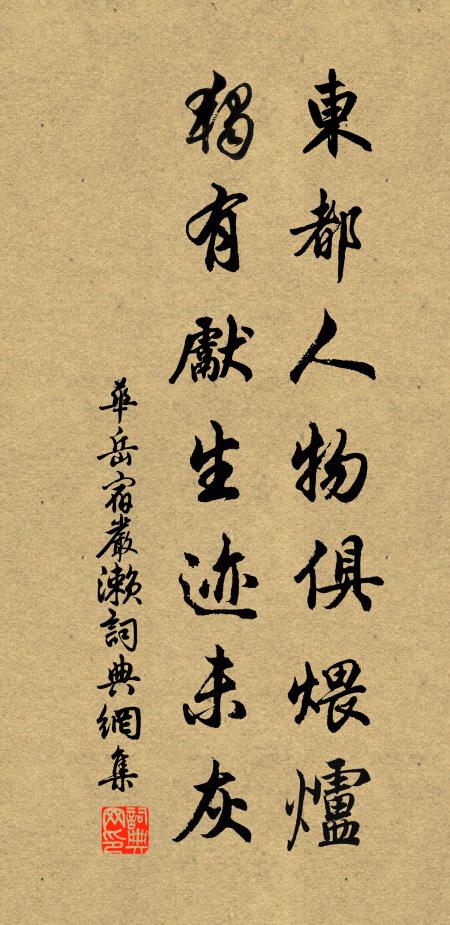 東都人物俱煨爐
獨有獻生迹未灰
華岳宿嚴瀨詞典網集
詞典网印